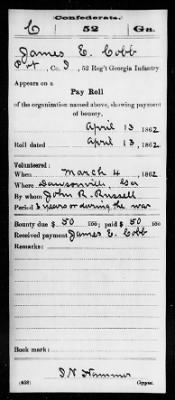 Confederate.
C 52 Ga.
James E. Cobb
Pvt, Co. I, 52 Reg't Georgia Infantry
Appears on a
Pay Roll
of the organization named above, showing payment
of bounty,
April 13 1862
Roll dated April 13, 1862
Volunteered:
When March 4, 1862
Where Dawsonville, Ga
By whom John R. Russell
Period 3 years or during the war
Bounty due $ 50 100; paid $ 50 100
Received payment James E. Cobb
Remarks:
Book mark:
Hammer
(639) Copyist.